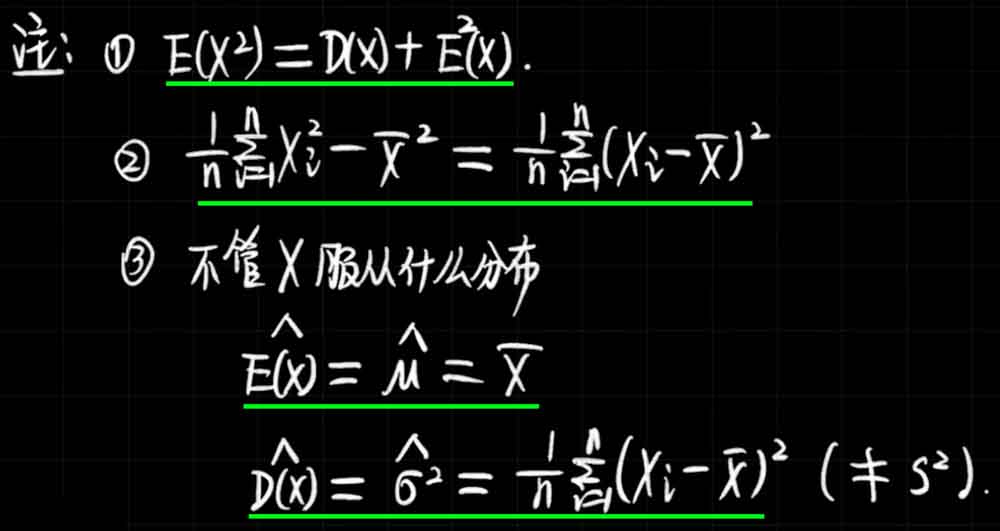 注: ① E(X²) = D(X) + E²(X).
② 1/n ∑ᵢ₌₁ⁿ Xᵢ² − X̄² = 1/n ∑ᵢ₌₁ⁿ (Xᵢ − X̄)²
③ 不管 X 服从什么分布
Ê(X) = μ̂ = X̄
D̂(X) = σ̂² = 1/n ∑ᵢ₌₁ⁿ (Xᵢ − X̄)² (≠ S²).